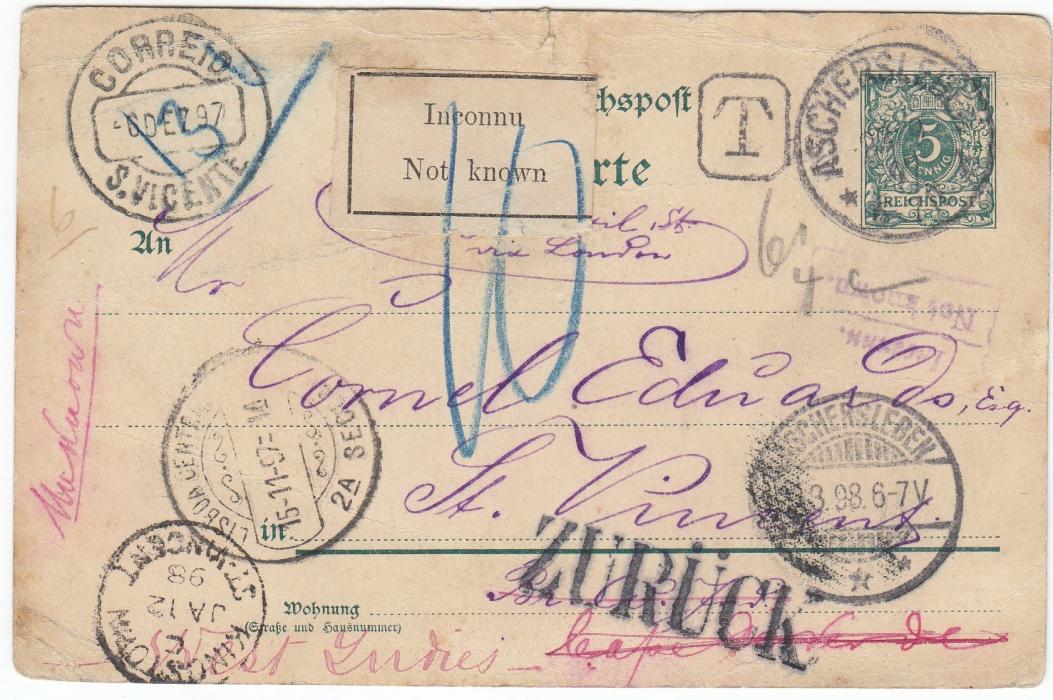 CORREIO
-6 DEZ 97
S. VICENTE
Inconnu
Not known
chspost
rte
T
* ASCHERSLEBEN
5
PFENNIG
REICHSPOST
il, St.
via London
An
Mr
6
Not known.
Cornel Eduards, Esq.
Unknown
LISBOA CENTRAL
15-11-97
2A SECÇÃO
St. Vincent.
ASCHERSLEBEN
3.98.6-7V
in
ZURÜCK
KINGSTOWN
C
JA 12
98
ST. VINCENT
Wohnung
(Straße und Hausnummer)
- West Indies -